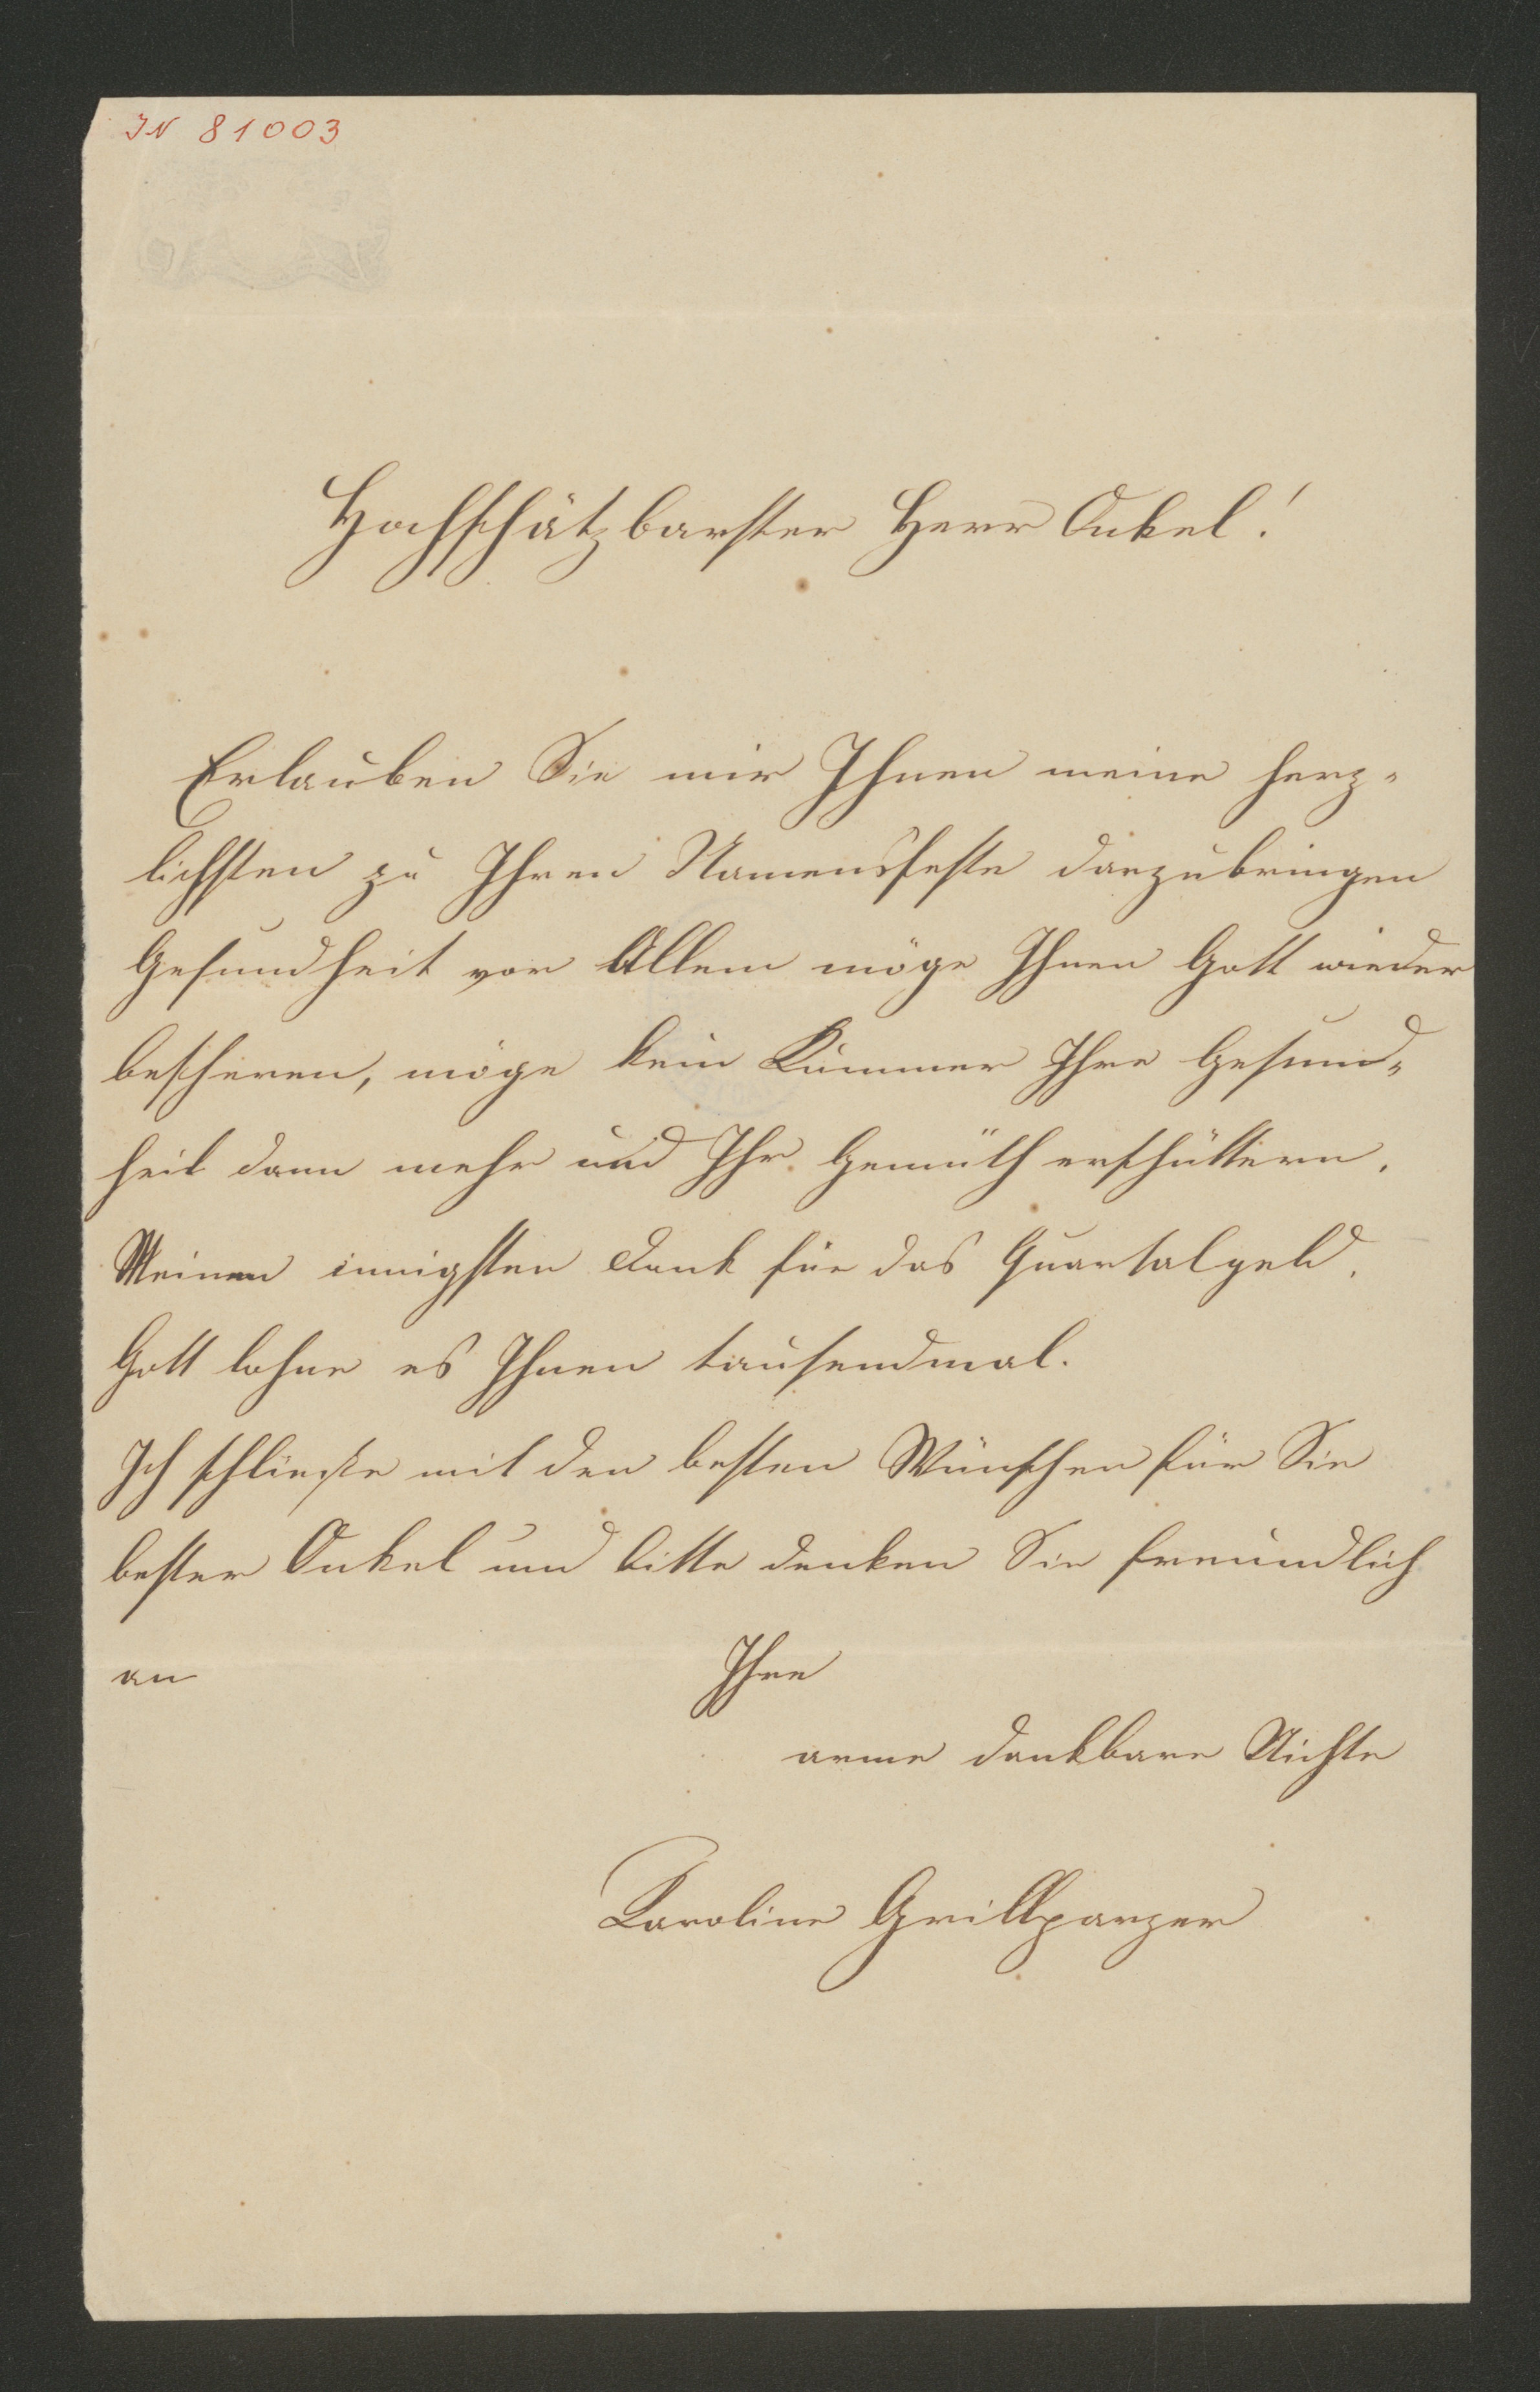 IN 81003
Hochschätzbarster Herr Onkel!
Erlauben Sie mir Ihnen meine herz-
lichsten zu Ihren Namensfeste darzubringen
Gesundheit vor Allem möge Ihnen Gott wieder
bescheren, möge kein Kummer Ihre Gesund-
heit dann mehr und Ihr Gemüth erschüttern.
Meinen innigsten Dank für das Quartalgeld.
Gott lohne es Ihnen tausendmal.
Ich schließe mit den besten Wünschen für Sie
bester Onkel und bitte denken Sie freundlich
an Ihre
arme dankbare Nichte
Karoline Grillparzer